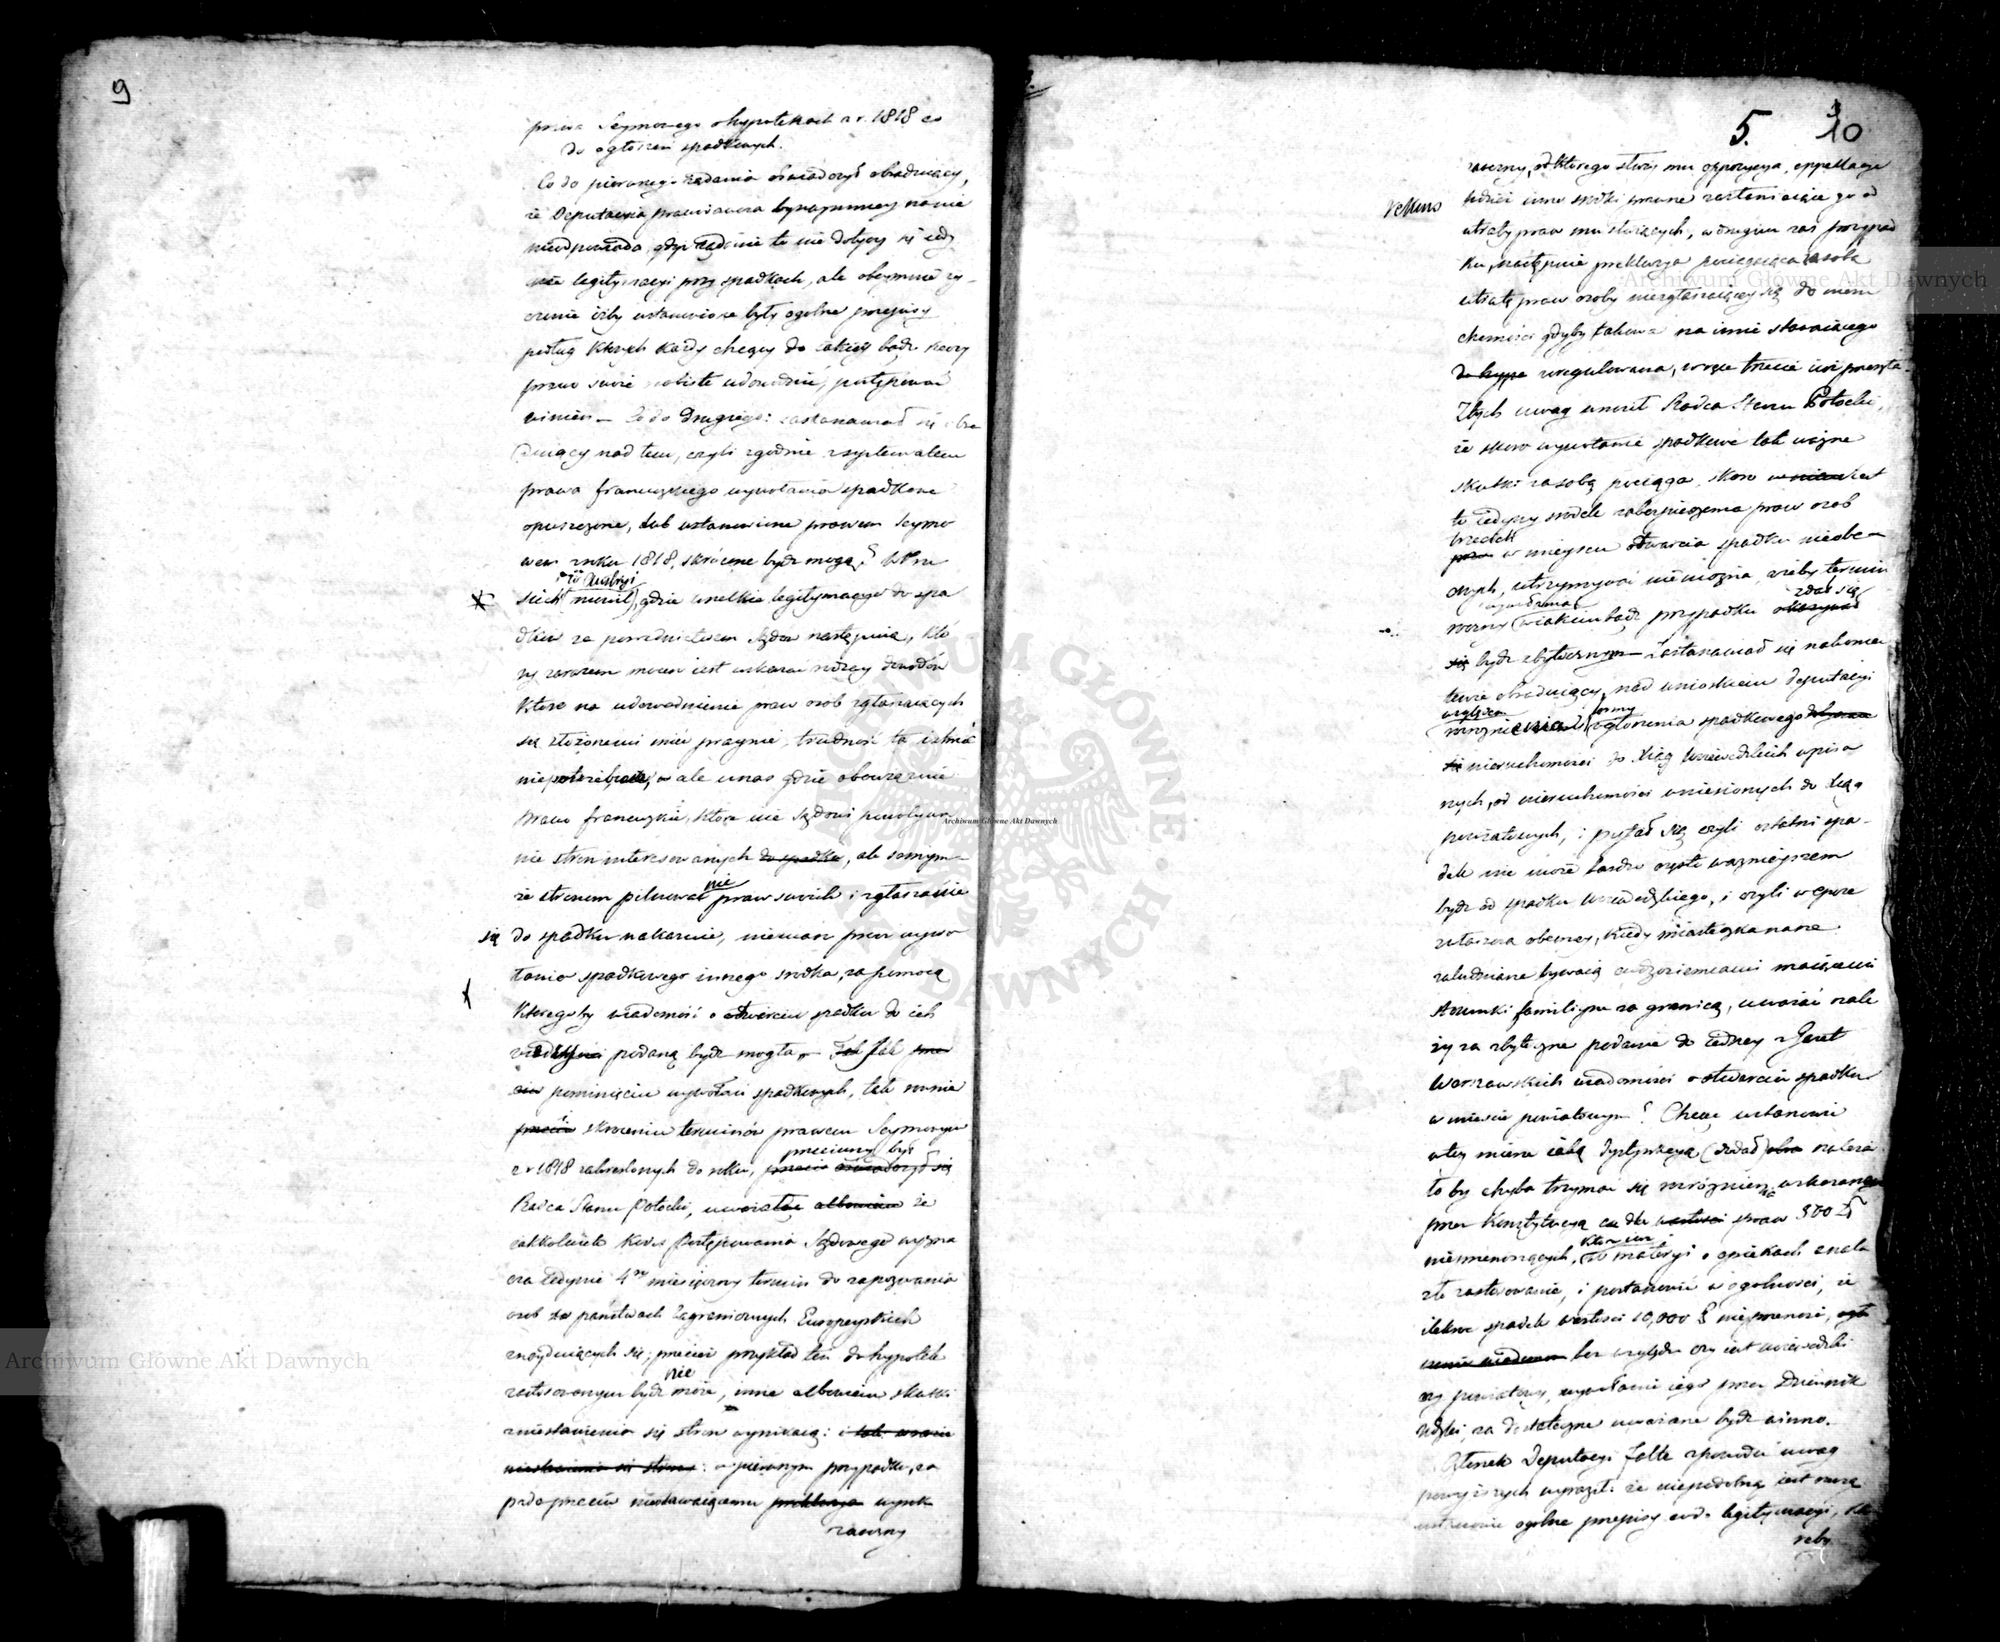 9
prawa Seymowego o hypotekach z r. 1818 co
do ogłoszeń spadkowych.
Co do pierwszego żądania oświadczył obradujący,
że Deputacya prawodawcza bynajmniey na nie
nieodpowiada, gdyż żądanie to nie dotyczy się iedy
nie legitymacyi przy spadkach, ale obeymuie ży-
czenie iżby ustanowione były ogólne przepisy
podług których każdy chcący do iakiey bądź rzeczy
prawo swoie osobiste udowodnić, postępować
winien - Co do drugiego: zastanawiał się obra
duiący nad tem, czyli zgodnie z systematem
prawa francuzkiego wywołania spadkowe
opuszczone, lub ustanowione prawem Seymo
wem z roku 1818, skrócone bydź mogą? W Pru
siech (mówił), gdzie wszelkie legitymacye do spa
dków za pośrednictwem Sądów następuią, któ
ry zarazem mocen iest wskazać rodzay dowodów
które na udowodnienie praw osób zgłaszaiących
się złożonemi mieć pragnie, trudność ta istnieć
nie, ale u nas gdzie obowiązuie
Prawo francuzkie, które nie Sądowi powoływa
nie stron interesowanych do spadku, ale samym-
że stronom pilnowanie praw swoich i zgłaszanie
się do spadku nakazuie, niemasz prócz wywo
łania spadkowego innego środka, za pomocą
któregoby wiadomość o otwarciu spadku do ich
podaną bydź mogła. Jak
pominięciu wywołań spadkowych, tak równie
skróceniu terminów prawem Seymowym
z r. 1818 zakreślonych do roku, przeciwny był
Radca Stanu Potocki, uważając albowiem że
iakkolwiek Kodex Postępowania Sądowego wyzna
cza iedynie 4ro miesięczny termin do zapozwania
osób w państwach zagranicznych Europeyskich
znayduiących się; przecież przykład ten do hypotek
zastosowanym bydź nie może, inne albowiem skutki
z niestawienia się stron wynikaią:
w pierwszym przypadku, za
pada przeciw niestawaiącemu wyrok
zaoczny
5.
10
zaoczny, od którego służy mu oppozycya, appellacya
tudzież inne środki prawne zasłaniaiące go od
utraty praw mu służących, w drugim zaś przypad
ku, następuie prekluzya pociągaiąca za sobą
utratę praw osoby niezgłaszaiącey się do nieru
chomości gdyby takowa na imie stawaiącego
do hyppo uregulowana, w ręce trzecie iuż przeszła.
Z tych uwag wnosił Radca Stanu Potocki,
że skoro wywołanie spadkowe tak ważne
skutki za sobą pociąga, skoro iest
to iedyny środek zabezpieczenia praw osób
trzecich w mieyscu otwarcia spadku nieobe-
cnych, utrzymywać nie można, ażeby termin
roczny w iakim bądź przypadku zdał się
bydź zbytecznym - Zastanawiał się nakoniec
tenże obraduiący, nad wnioskiem Deputacyi
względem formy ogłoszenia spadkowego
nieruchomości do Xiąg Woiewódzkich wpisa
nych, od nieruchomości wniesionych do Xiąg
powiatowych, i pytał się czyli ostatni spa-
dek nie może bardzo często ważnieyszem
bydź od spadku Woiewódzkiego, i czyli w epoce
zwłaszcza obecney, kiedy miasteczka nasze
zaludniane bywaią cudzoziemcami maiącemi
stosunki familiyne za granicą, uważać nale
ży za zbyteczne podanie do iedney z Gazet
Warszawskich wiadomości o otwarciu spadku
w mieście powiatowym? Chcąc ustanowić
w tey mierze iaką dystynkcyą (dodał) należa
ło by chyba trzymać się rozróżnienia wskazanego
przez Konstytucyą co do spraw 500 Zł
nieprzenoszących, które w materyi o opiekach znala
zło zastosowanie, i postanowić w ogólności, że
ilekroć spadek wartości 10,000 Zł nieprzenosi,
bez względu czy iest woiewódzki
czy powiatowy, wywołanie iego przez Dziennik
Wdzki, za dostateczne uważane bydź winno.
Członek Deputacyi z powodu uwag
powyższych wyraził: że niepodobną iest rzeczą
ustanowić ogólne przepisy co do legitymacyi, któ
reby